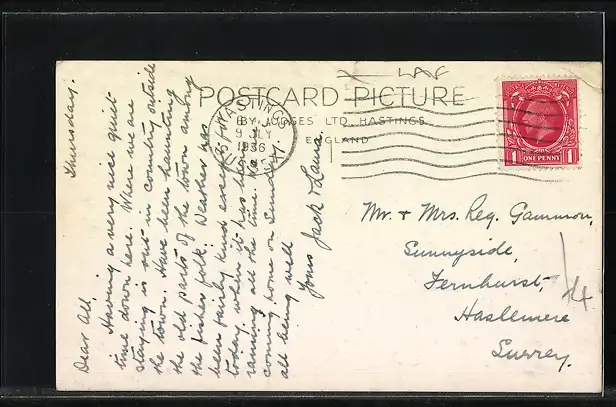 Thursday.
Dear All,
Having a very nice quiet
time down here. Where we are
staying is out in country outside
the town. Have been haunting
the old parts of the town among
the fisher folk. Weather has
been fairly kind except
today when it has been
raining all the time. Are
coming home on Sunday
all being well
Yours Jack & Laura.
POSTCARD PICTURE
BY JUDGES' LTD, HASTINGS,
ENGLAND
HASTINGS
9 JLY
1936
ONE PENNY
1 1
Mr. & Mrs. Reg. Gammon,
Sunnyside,
Fernhurst,
Haslemere
Surrey.